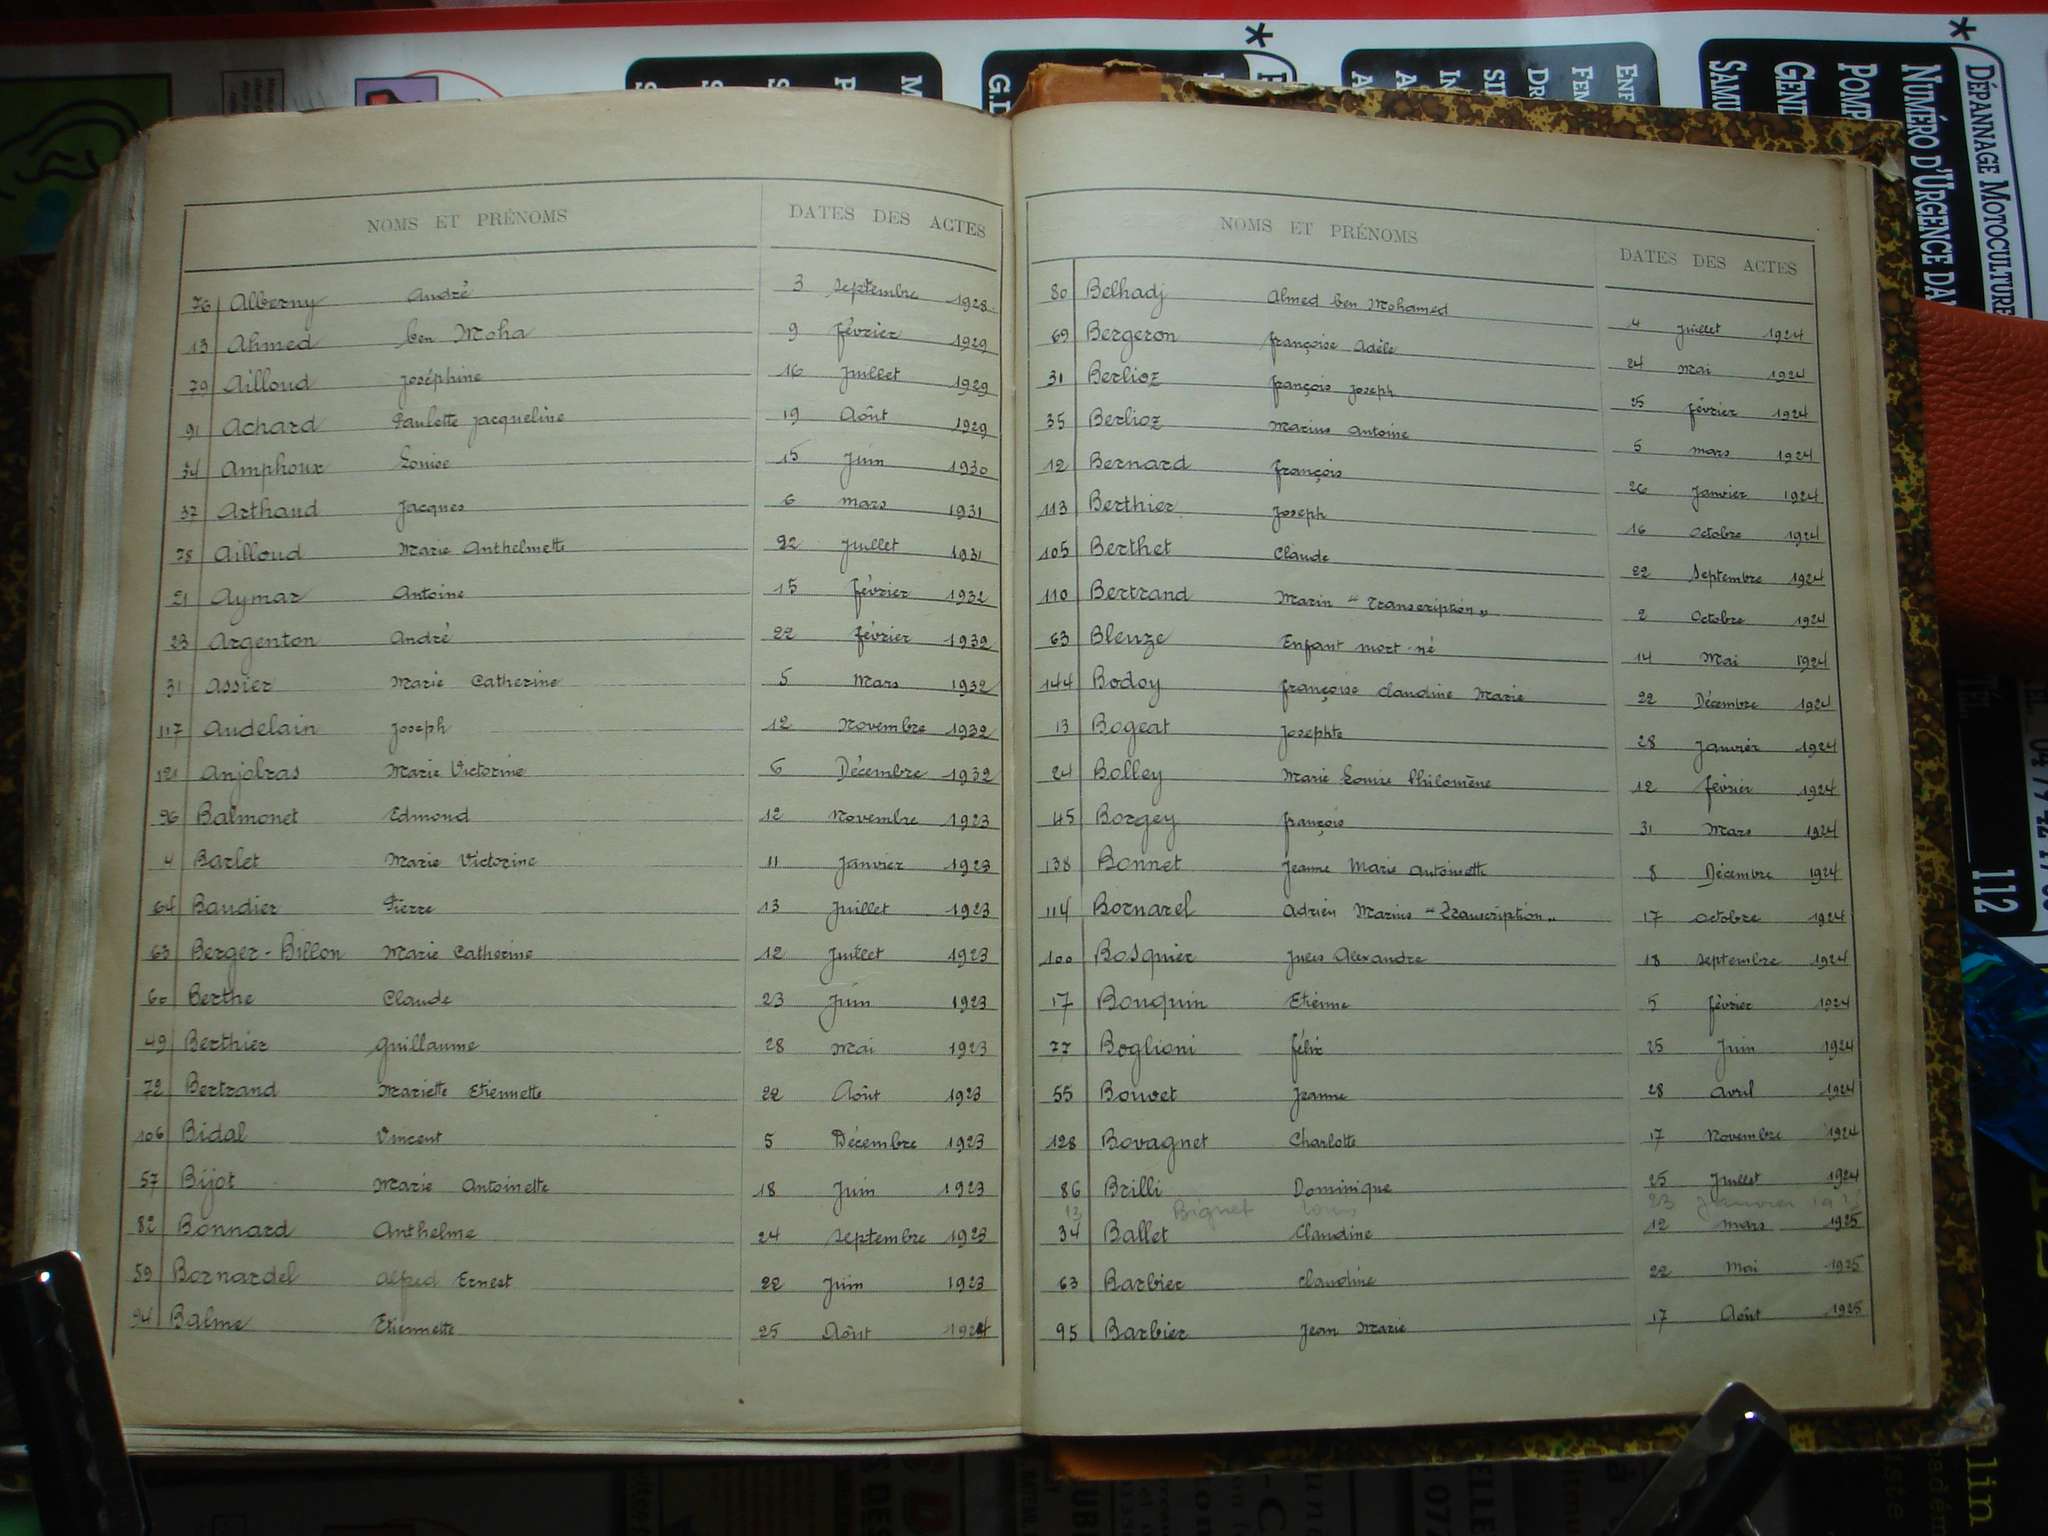 NOMS ET PRÉNOMS DATES DES ACTES
76 Alberny André 3 Septembre 1928
13 Ahmed ben Moha 9 février 1929
79 Ailloud Joséphine 16 Juillet 1929
91 Achard Paulette Jacqueline 19 Août 1929
54 Amphoux Louise 15 Juin 1930
37 Arthaud Jacques 6 mars 1931
78 Ailloud Marie Anthelmette 22 Juillet 1931
21 Aymar Antoine 15 février 1932
23 Argenton André 22 février 1932
31 Assier Marie Catherine 5 Mars 1932
117 Audelain Joseph 12 Novembre 1932
121 Anjolras Marie Victorine 6 Décembre 1932
96 Balmonet Edmond 12 Novembre 1923
4 Barlet Marie Victorine 11 Janvier 1923
64 Baudier Pierre 13 Juillet 1923
63 Berger-Billon Marie Catherine 12 Juillet 1923
60 Berthe Claude 23 Juin 1923
49 Berthier Guillaume 28 Mai 1923
72 Bertrand Mariette Etiennette 22 Août 1923
106 Bidal Vincent 5 Décembre 1923
57 Bijot Marie Antoinette 18 Juin 1923
82 Bonnard Anthelme 24 Septembre 1923
59 Bornardel Alfred Ernest 22 Juin 1923
94 Balme Etiennette 25 Août 1924
NOMS ET PRÉNOMS DATES DES ACTES
80 Belhadj Ahmed ben Mohamed 4 Juillet 1924
69 Bergeron françoise Adèle 24 Mai 1924
31 Berlioz françois Joseph 25 février 1924
35 Berlioz Marius Antoine 5 mars 1924
12 Bernard françois 26 Janvier 1924
113 Berthier Joseph 16 Octobre 1924
105 Berthet Claude 22 Septembre 1924
110 Bertrand Marin "Transcription" 2 Octobre 1924
63 Bleuze Enfant mort-né 14 Mai 1924
144 Bodoy françoise Claudine Marie 22 Décembre 1924
13 Bogeat Josephte 28 Janvier 1924
24 Bolley Marie Louise Philomène 12 février 1924
45 Borgey françois 31 Mars 1924
138 Bonnet Jeanne Marie Antoinette 8 Décembre 1924
114 Bornarel Adrien Marius "Transcription" 17 Octobre 1924
100 Bosquier Jules Alexandre 18 Septembre 1924
17 Bouquin Etienne 5 février 1924
77 Boglioni félix 25 Juin 1924
55 Bouvet Jeanne 28 Avril 1924
128 Bovagnet Charlotte 17 Novembre 1924
86 Brilli Dominique 25 Juillet 1924
13 Biguet Louis 23 Janvier
34 Ballet Claudine 12 Mars 1925
63 Barbier Claudine 22 Mai 1925
95 Barbier Jean Marie 17 Août 1925
DÉPANNAGE MOTOCULTURE
NUMÉRO D'URGENCE DA
POMP
GEND
SAMU
112